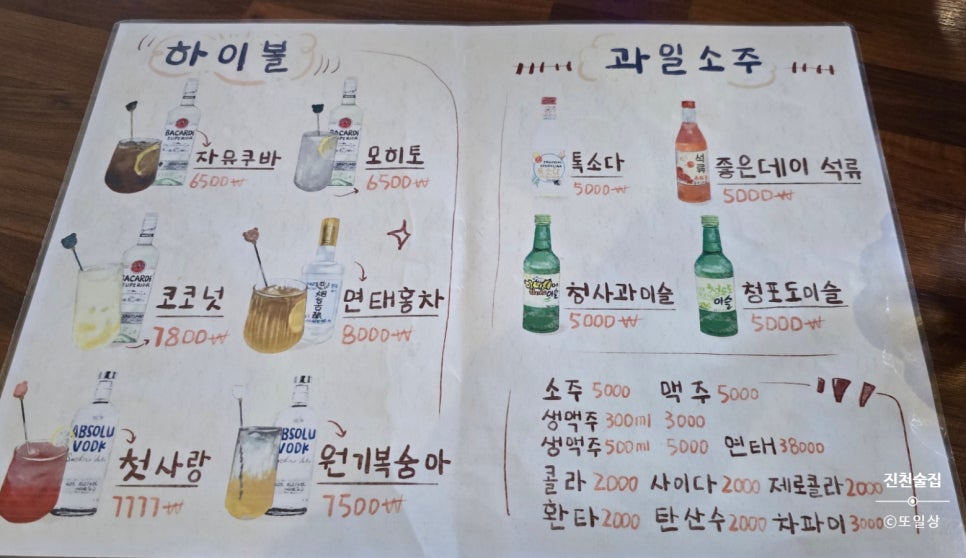 하이볼
BACARDI
SUPERIOR
자유쿠바
6500₩
BACARDI
모히토
6500₩
BACARDI
코코넛
7800₩
면태홍차
8000₩
ABSOLU
VODK
첫사랑
7777₩
BSOLU
VODK
원기복숭아
7500₩
과일소주
톡소다
5000₩
석류
좋은데이 석류
5000₩
이슬
청사과이슬
5000₩
이슬
청포도이슬
5000₩
소주 5000 맥주 5000
생맥주 300ml 3000
생맥주 500ml 5000 면태 38000
콜라 2000 사이다 2000 제로콜라 2000
환타 2000 탄산수 2000 차파이 3000
진천술집
©또일상